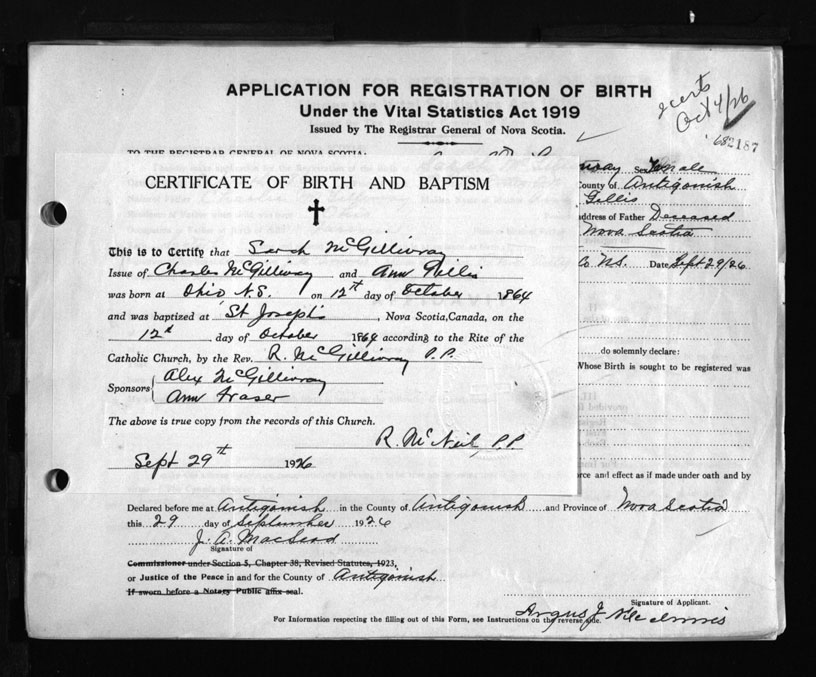 APPLICATION FOR REGISTRATION OF BIRTH
Under the Vital Statistics Act 1919
Issued by The Registrar General of Nova Scotia.
Oct 4/26
682187
TO THE REGISTRAR GENERAL OF NOVA SCOTIA:
Sex Female
County of Antigonish
Gillis
address of Father Deceased
Nova Scotia
Co N.S. Date Sept 29/26
do solemnly declare:
Whose Birth is sought to be registered was
CERTIFICATE OF BIRTH AND BAPTISM
This is to Certify that Sarah McGillivray
Issue of Charles McGillivray and Ann Gillis
was born at Ohio N.S. on 12th day of October 1864
and was baptized at St Joseph's, Nova Scotia, Canada, on the
12th day of October 1864 according to the Rite of the
Catholic Church, by the Rev. R. McGillivray P.P.
Sponsors { Alex McGillivray
Ann Fraser
The above is true copy from the records of this Church.
R. McNeil, P.P.
Sept 29th 1926
force and effect as if made under oath and by
Declared before me at Antigonish in the County of Antigonish and Province of Nova Scotia
this 29 day of September 1926
J. A. MacLeod
Signature of
Commissioner under Section 5, Chapter 38, Revised Statutes, 1923,
or Justice of the Peace in and for the County of Antigonish
If sworn before a Notary Public affix seal.
Signature of Applicant.
Angus J. McInnis
For Information respecting the filling out of this Form, see Instructions on the reverse side.